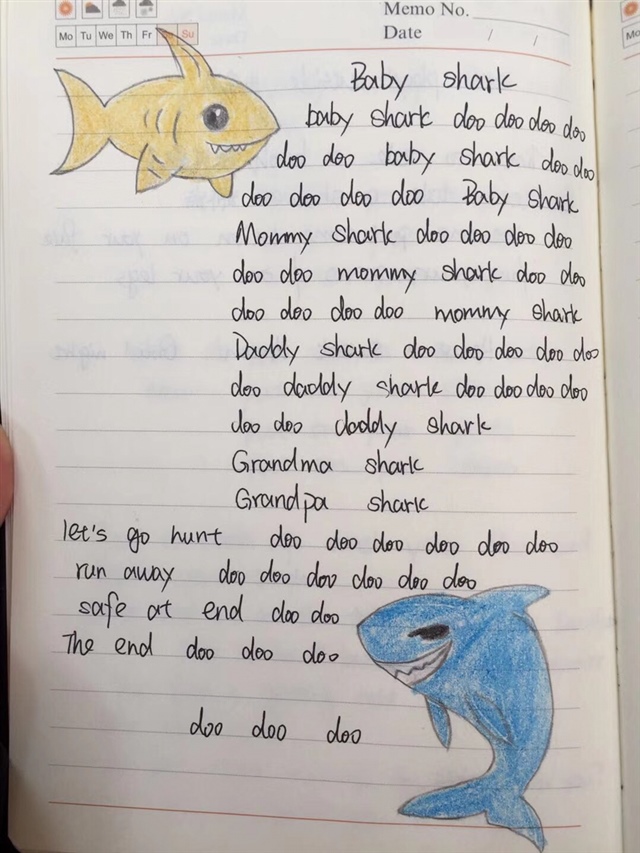 Memo No.
Mo Tu We Th Fr Su
Date / /
Baby shark
baby shark doo doo doo doo
doo doo baby shark doo doo
doo doo doo doo Baby shark
Mommy shark doo doo doo doo
doo doo mommy shark doo doo
doo doo doo doo mommy shark
Daddy shark doo doo doo doo doo
doo daddy shark doo doo doo doo
doo doo daddy shark
Grandma shark
Grandpa shark
let's go hunt doo doo doo doo doo doo
run away doo doo doo doo doo doo
safe at end doo doo
The end doo doo doo
doo doo doo